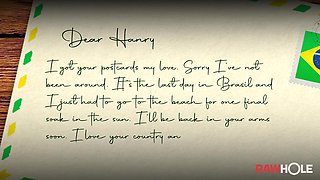 Dear Hanry
I got your postcards my love. Sorry I've not
been around. It's the last day in Brasil and
I just had to go to the beach for one final
soak in the sun. I'll be back in your arms
soon. I love your country an
RAWHOLE